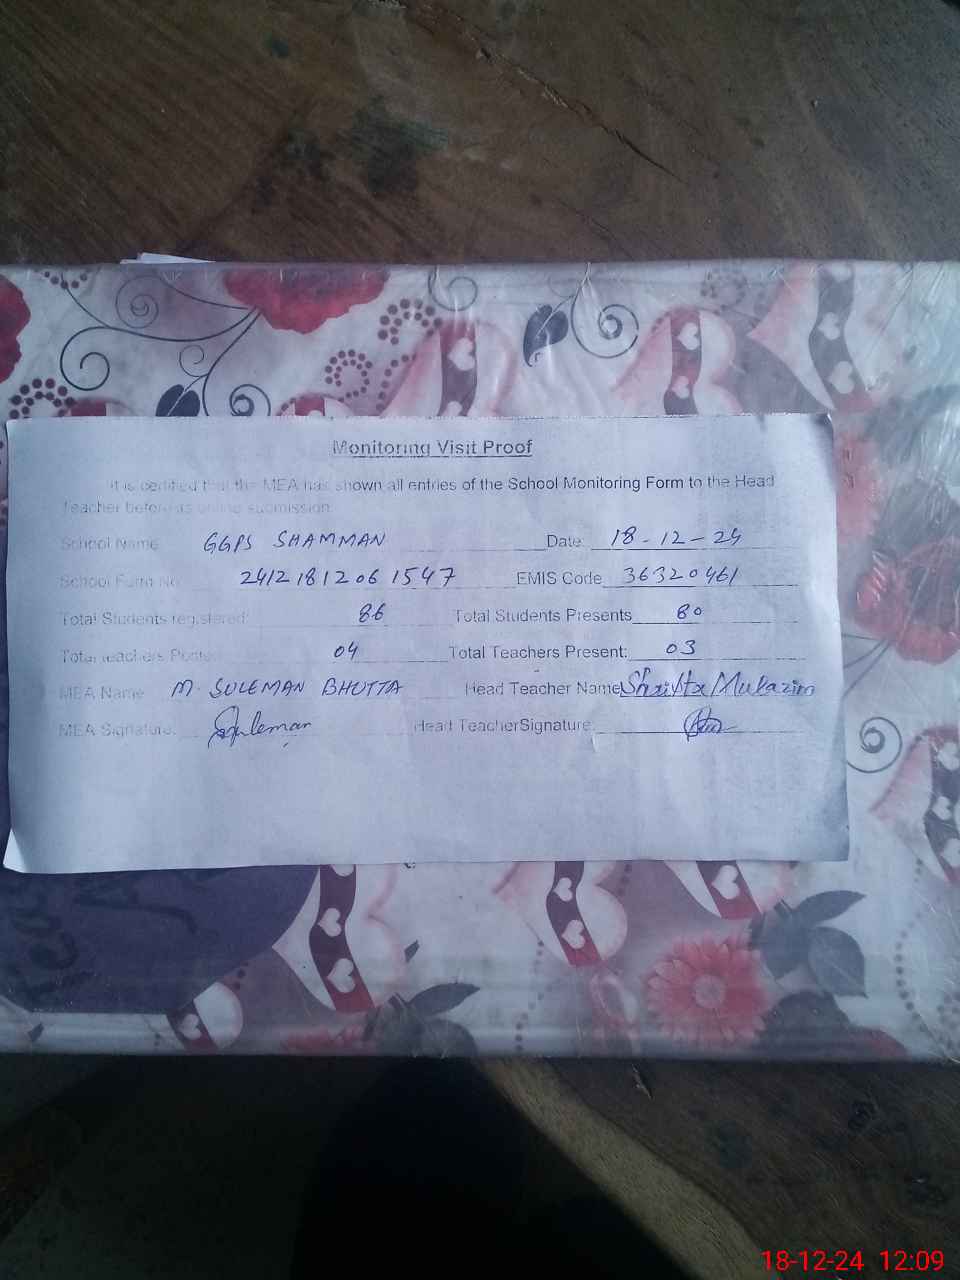 Monitoring Visit Proof
It is certified that the MEA has shown all entries of the School Monitoring Form to the Head
Teacher before its online submission.
School Name GGPS SHAMMAN Date: 18-12-24
School Form No 2412181206 1547 EMIS Code 36320461
Total Students registered: 86 Total Students Presents 80
Total teachers Posted 04 Total Teachers Present: 03
MEA Name M. SULEMAN BHUTTA Head Teacher Name Shaista Mukazim
MEA Signature: Suleman Head TeacherSignature:
18-12-24 12:09